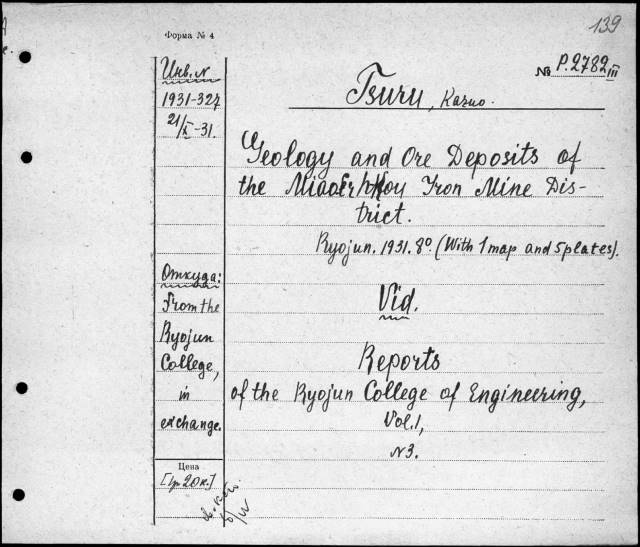 139
Форма № 4
Инв. N
№ P.2782 III
1931-327
21/X-31.
Tsuru, Kazuo.
Geology and Ore Deposits of
the Iron Mine Dis-
trict.
Ryojun. 1931. 8º. (With 1 map and 5 plates).
Откуда:
From the
Ryojun
College,
in
exchange.
Vid.
Reports
of the Ryojun College of Engineering,
Vol. 1,
N3.
Цена
[1р 20к.]